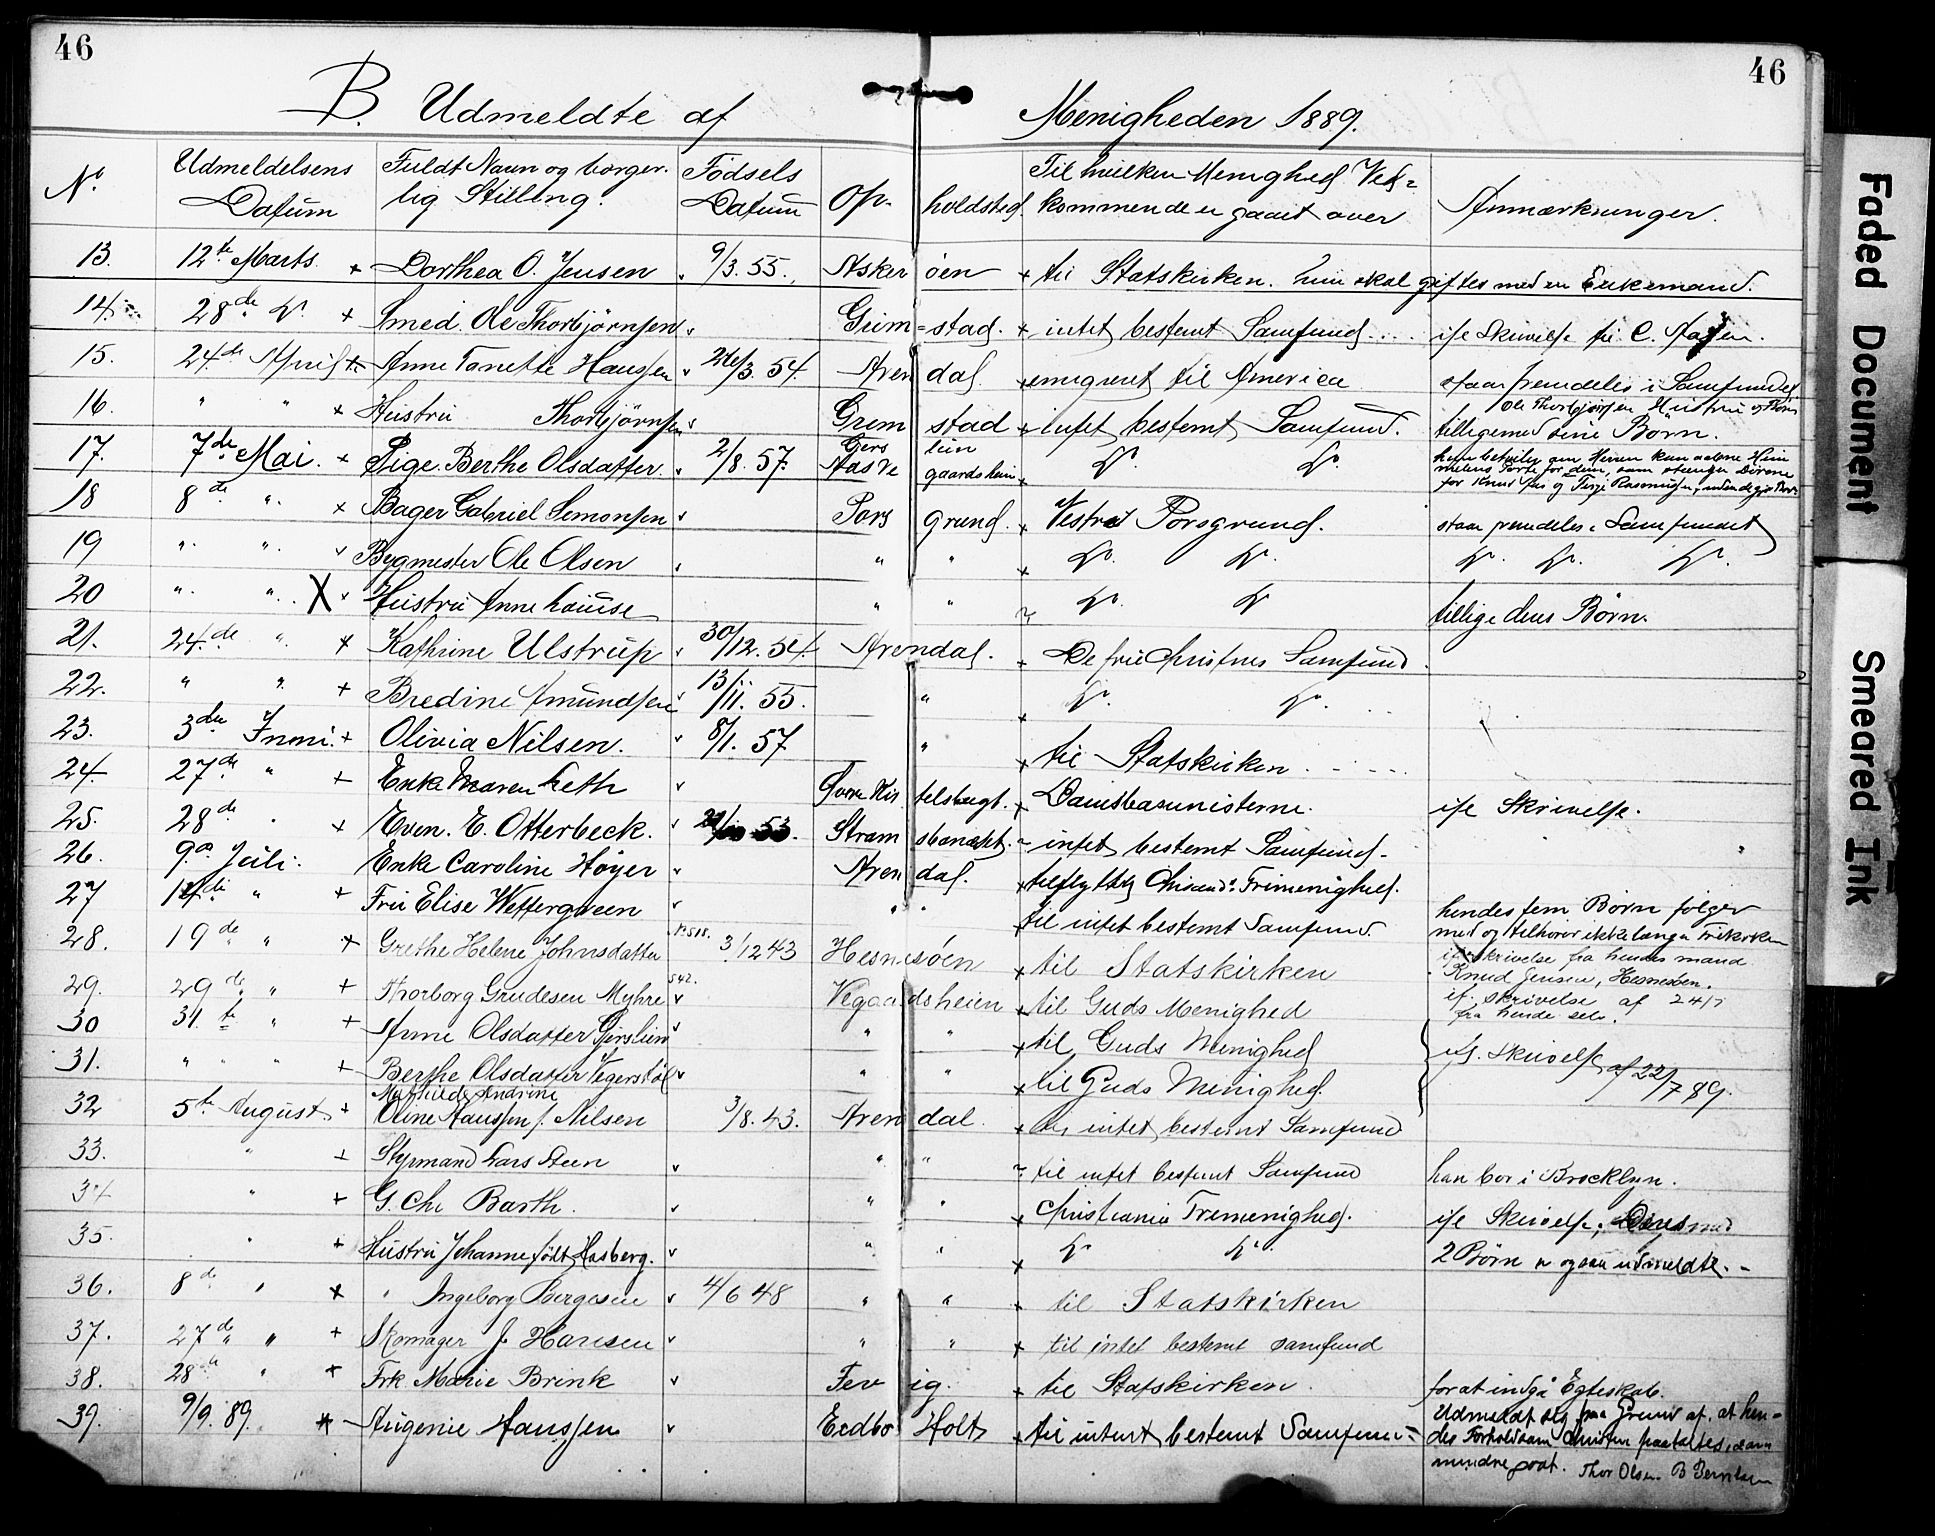 46
46
B. Udmeldte af Menigheden 1889.
No. Udmeldelsens Datum Fuldt Navn og borgerlig Stilling. Fødsels Datum Opholdsted. Til hvilken Menighed Vedkommende er gaaet over Anmærkninger.
13. 12te Marts. + Dorthea O. Jensen 9/3. 55. Asker öen + til Statskirken. hun skal giftes med en Enkemand.
14. 28de do + Smed Ole Thorbjörnsen Grim=stad. + intet bestemt Samfund.... ifl Skrivelse til C.
15. 24de April + Anne Tanette Hanssen 26/3. 54. Aren dal. + emigreret til America staar fremdeles i Samfundet
16. " " + Hustru Thorbjörnsen Grim stad + intet bestemt Samfund. Ole Thorbjørnsen Hustru
tilligemed sine Børn.
17. 7de Mai. + Pige. Berthe Olsdatter. 2/8. 57. Gers lien gaardshein + do. do.
18 8de " + Bager Gabriel Simonsen Pors grund. + Vestre Porsgrund. staar fremdeles i Samfundet
19 " " Bygmester Ole Olsen " " + do. do. do. do. do.
20 " " X Hustru Anne Louise " " do. do tillige deres Børn.
21. 24.de " + Kathrine Ulstrup 30/12. 54. Arendal. + De frie Christnes Samfund.
22. " " + Bredine Amundsen 13/11. 55. " + do. do.
23. 3die Juni. + Olivia Nilsen. 8/1. 57 " + til Statskirken.
24. 27de " + Enke Maren Leth telsbugt. + Damsbasunisterne. ifl Skrivelse.
25. 28de " + Even. E. Otterbeck. 53. Strom intet bestemt Samfund.
26. 9de Juli. Enke Caroline Höyer Aren dal. + tilflyttet Frimenighed.
27 14de " + Fru Elise Wettergreen " " + til intet bestemt Samfund. hendes fem Børn følger
med og tilhører ikke længer Frikirken
28. 19de " + Grethe Helene Johnsdatter 3/12 43 Hesnesöen + til Statskirken if. Skrivelse fra hendes mand
Knud Jensen, Hesnesöen.
29. 29de " + Thorborg Grudesen Myhre 542. Vegaardsheien + til Guds Menighed if. Skrivelse af 24/7
fra hende selv.
30 31.te " + Anne Olsdatter Gjerslien " " + til Guds Menighed if. Skrivelse af 22/7 89.
31. " " " + Berthe Olsdatter Vegerstøl " " + til Guds Menighed.
32 5te August. + Mathilde Andrine
Oline Hanssen f. Nilsen 3/8. 43. Aren dal. + til intet bestemt Samfund
33. " + Styrmand Lars Steen " " til intet bestemt Samfund han bor i Brocklyn.
34 " + G. Chr Barth. " " + Christiania Frimenighed. ifl Skrivelse; Deres
35. " + Hustru Johanne født Hasberg. " " + do do. 2 Børn er ogsaa udmeldte. -
36. 8de " + " Ingeborg Bergesen 4/6 48 " " + til Statskirken
37. 27de " + Skomager J. Hansen " " + til intet bestemt samfund
38. 28de " + Frk. Marie Brink Fev ig. + til Statskirken. for at indgå Egteskab.
39. 9/9. 89. + Augenie Hanssen Holt + til intent bestemt Samfund Udmeldt sig paa Grund af, at hen=
des Forhold som Christen paataltes, som
mindre godt. Thor Olsen. B Berntsen
Faded Document
Smeared Ink